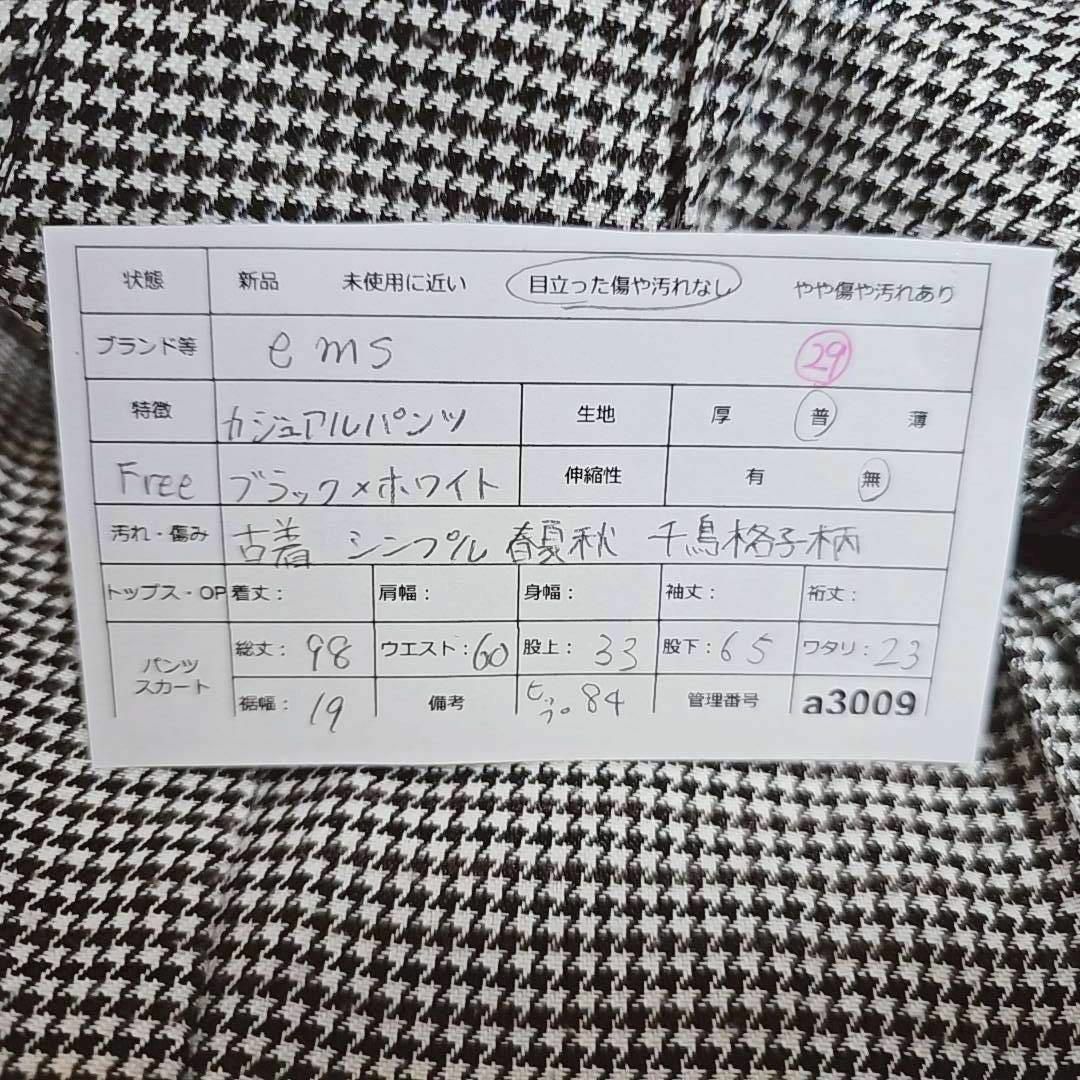 状態 新品 未使用に近い 目立った傷や汚れなし やや傷や汚れあり
ブランド等 ems 29
特徴 カジュアルパンツ 生地 厚 普 薄
Free ブラック×ホワイト 伸縮性 有 無
汚れ・傷み 古着 シンプル 春夏秋 千鳥格子柄
トップス・OP 着丈: 肩幅: 身幅: 袖丈: 裄丈:
パンツ スカート 総丈: 98 ウエスト: 60 股上: 33 股下: 65 ワタリ: 23
裾幅: 19 備考 ヒップ 84 管理番号 a3009